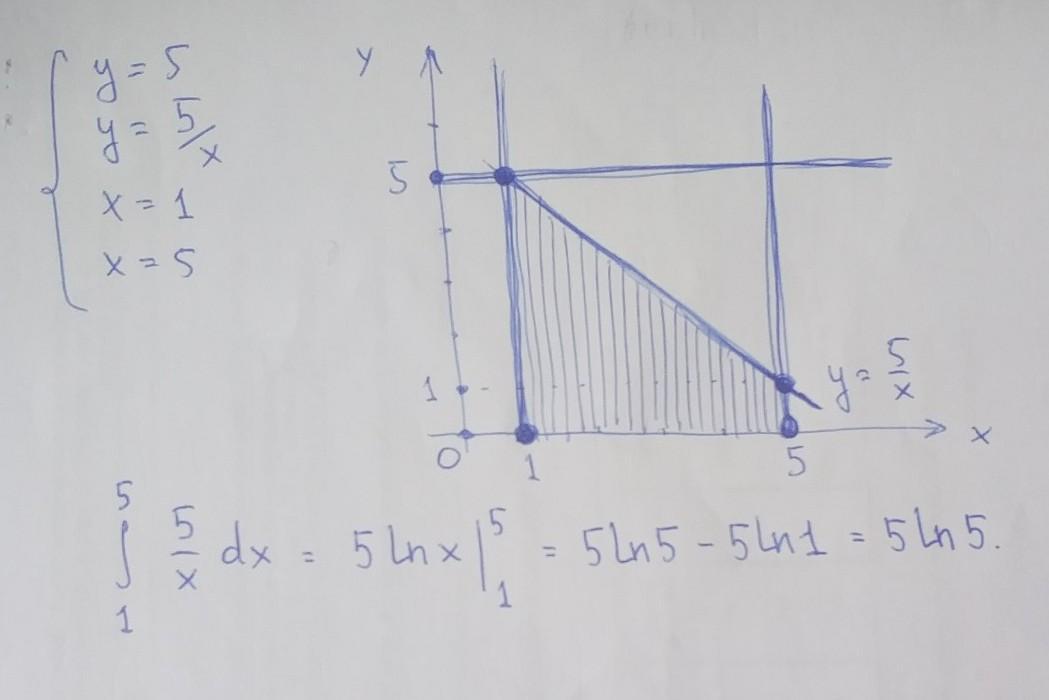 y = 5
y = 5/x
x = 1
x = 5
y
5
1
0
1
5
x
y = 5/x
∫₁⁵ 5/x dx = 5 ln x |₁⁵ = 5 ln 5 - 5 ln 1 = 5 ln 5.